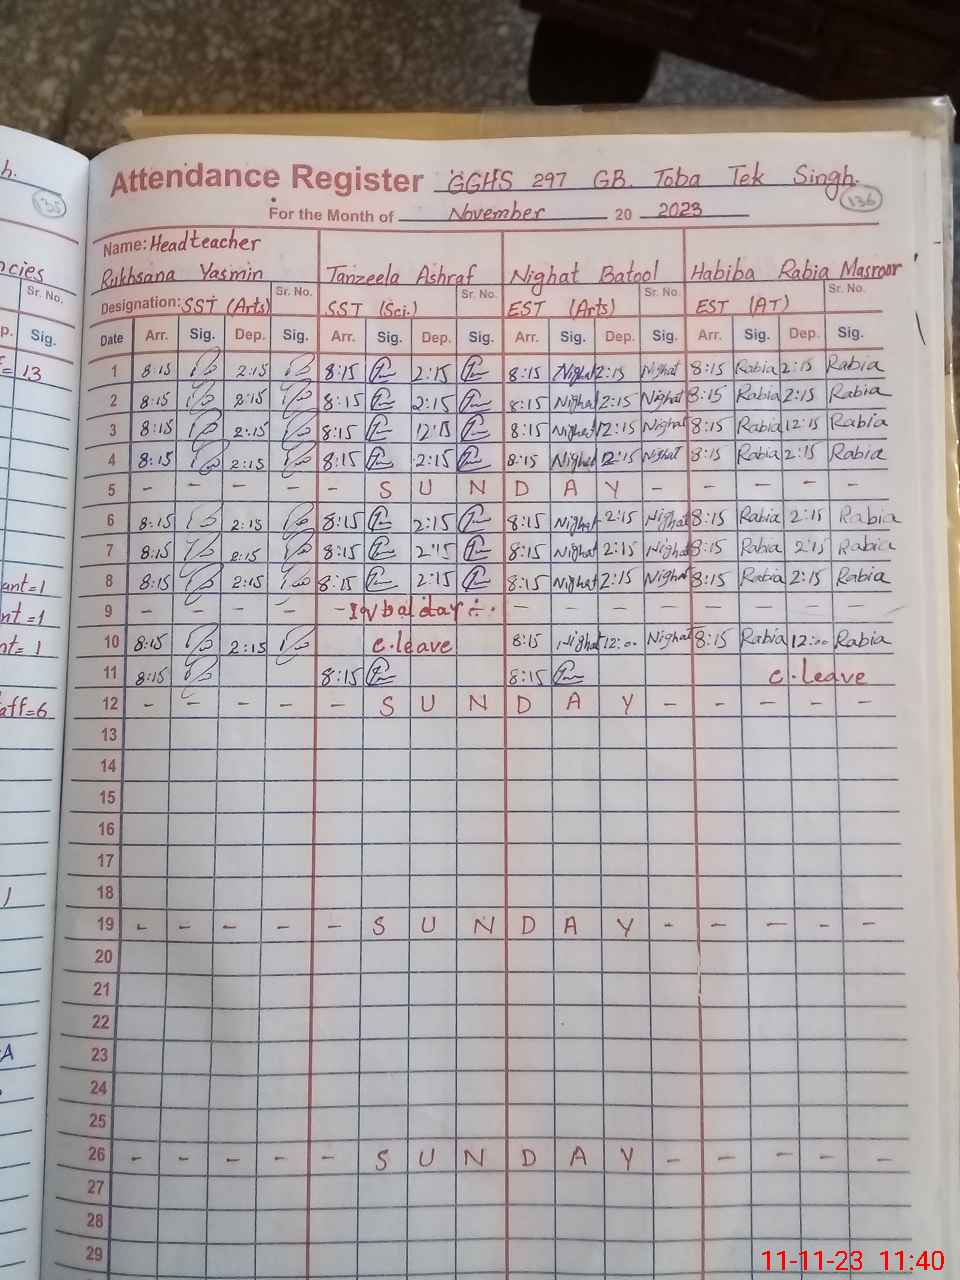 h.
135
ncies
Sr. No.
p. Sig.
= 13
ant=1
nt=1
nt=1
aff=6
Attendance Register GGHS 297 GB. Toba Tek Singh.
136
For the Month of November 20 2023
Name: Headteacher
Rukhsana Yasmin Tanzeela Ashraf Nighat Batool Habiba Rabia Masroor
Designation: SST (Arts) Sr. No. SST (Sci.) Sr. No. EST (Arts) Sr. No. EST (AT) Sr. No.
Date Arr. Sig. Dep. Sig. Arr. Sig. Dep. Sig. Arr. Sig. Dep. Sig. Arr. Sig. Dep. Sig.
1 8:15 2:15 8:15 2:15 8:15 Nighat 2:15 Nighat 8:15 Rabia 2:15 Rabia
2 8:15 2:15 8:15 2:15 8:15 Nighat 2:15 Nighat 8:15 Rabia 2:15 Rabia
3 8:15 2:15 8:15 12:15 8:15 Nighat 12:15 Nighat 8:15 Rabia 12:15 Rabia
4 8:15 2:15 8:15 2:15 8:15 Nighat 2:15 Nighat 8:15 Rabia 2:15 Rabia
5 - - - - - S U N D A Y - - - - -
6 8:15 2:15 8:15 2:15 8:15 Nighat 2:15 Nighat 8:15 Rabia 2:15 Rabia
7 8:15 2:15 8:15 2:15 8:15 Nighat 2:15 Nighat 8:15 Rabia 2:15 Rabia
8 8:15 2:15 8:15 2:15 8:15 Nighat 2:15 Nighat 8:15 Rabia 2:15 Rabia
9 - - - - - Iqbal day - - - - - - - -
10 8:15 2:15 c.leave 8:15 Nighat 12:00 Nighat 8:15 Rabia 12:00 Rabia
11 8:15 8:15 8:15 c.leave
12 - - - - - S U N D A Y - - - - -
13
14
15
16
17
18
19 - - - - - S U N D A Y - - - - -
20
21
22
23
24
25
26 - - - - - S U N D A Y - - - - -
27
28
29
11-11-23 11:40